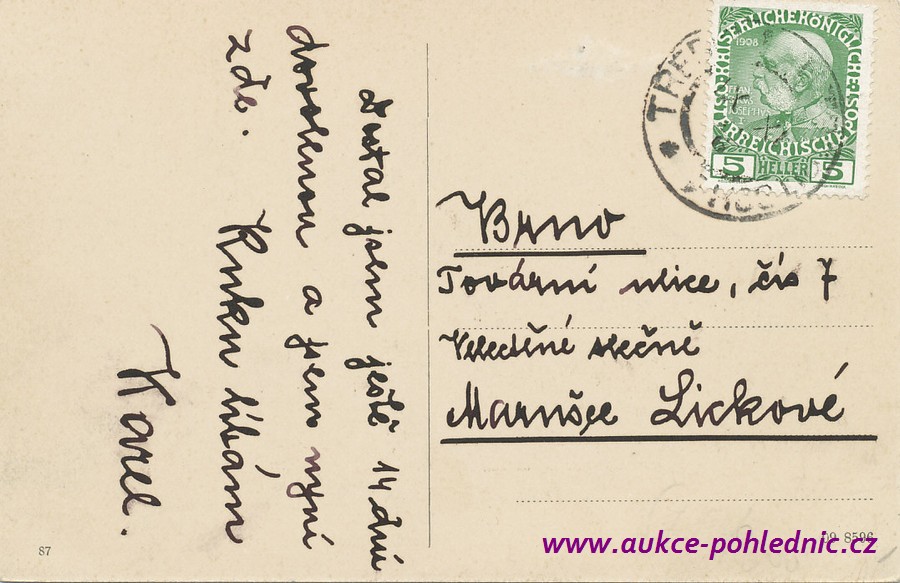 Dostal jsem ještě 14 dní
dovolenou a jsem nyní
zde.
Ruku líbám
Karel.
Brno
Tovární ulice, čís 7
Velectěné slečně
Marušce Lickové
KAISERLICHEKÖNIGLICHE
ÖSTERREICHISCHE POST
1908
FRANCISCUS JOSEPHUS I
5 HELLER 5
* TŘE
87
09 8596
www.aukce-pohlednic.cz